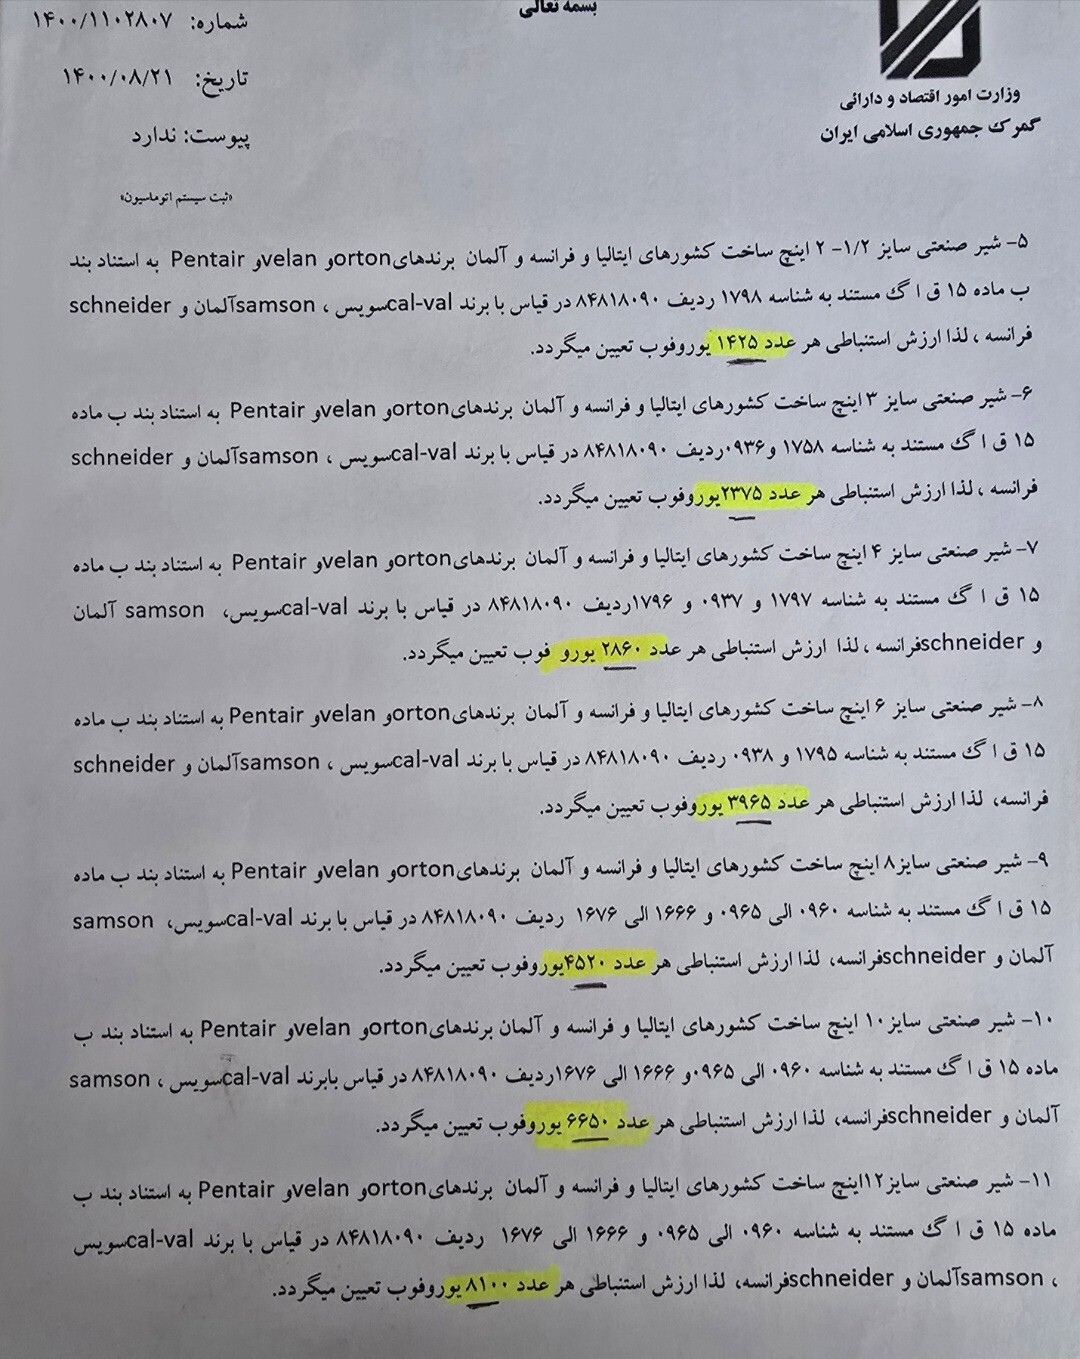 بسمه تعالی
شماره: ۱۴۰۰/۱۱۰۲۸۰۷
تاریخ: ۱۴۰۰/۰۸/۲۱
پیوست: ندارد
«ثبت سیستم اتوماسیون»
وزارت امور اقتصاد و دارائی
گمرک جمهوری اسلامی ایران
۵- شیر صنعتی سایز ۱/۲- ۲ اینچ ساخت کشورهای ایتالیا و فرانسه و آلمان برندهای orton و velan و Pentair به استناد بند
ب ماده ۱۵ ق ا گ مستند به شناسه ۱۷۹۸ ردیف ۸۴۸۱۸۰۹۰ در قیاس با برند cal-val سویس ، samson آلمان و schneider
فرانسه ، لذا ارزش استنباطی هر عدد ۱۴۲۵ یوروفوب تعیین میگردد.
۶- شیر صنعتی سایز ۳ اینچ ساخت کشورهای ایتالیا و فرانسه و آلمان برندهای orton و velan و Pentair به استناد بند ب ماده
۱۵ ق ا گ مستند به شناسه ۱۷۵۸ و ۰۹۳۶ ردیف ۸۴۸۱۸۰۹۰ در قیاس با برند cal-val سویس ، samson آلمان و schneider
فرانسه ، لذا ارزش استنباطی هر عدد ۲۳۷۵ یوروفوب تعیین میگردد.
۷- شیر صنعتی سایز ۴ اینچ ساخت کشورهای ایتالیا و فرانسه و آلمان برندهای orton و velan و Pentair به استناد بند ب ماده
۱۵ ق ا گ مستند به شناسه ۱۷۹۷ و ۰۹۳۷ و ۱۷۹۶ ردیف ۸۴۸۱۸۰۹۰ در قیاس با برند cal-val سویس، samson آلمان
و schneider فرانسه ، لذا ارزش استنباطی هر عدد ۲۸۶۰ یورو فوب تعیین میگردد.
۸- شیر صنعتی سایز ۶ اینچ ساخت کشورهای ایتالیا و فرانسه و آلمان برندهای orton و velan و Pentair به استناد بند ب ماده
۱۵ ق ا گ مستند به شناسه ۱۷۹۵ و ۰۹۳۸ ردیف ۸۴۸۱۸۰۹۰ در قیاس با برند cal-val سویس ، samson آلمان و schneider
فرانسه، لذا ارزش استنباطی هر عدد ۳۹۶۵ یوروفوب تعیین میگردد.
۹- شیر صنعتی سایز ۸ اینچ ساخت کشورهای ایتالیا و فرانسه و آلمان برندهای orton و velan و Pentair به استناد بند ب ماده
۱۵ ق ا گ مستند به شناسه ۰۹۶۰ الی ۰۹۶۵ و ۱۶۶۶ الی ۱۶۷۶ ردیف ۸۴۸۱۸۰۹۰ در قیاس با برند cal-val سویس، samson
آلمان و schneider فرانسه، لذا ارزش استنباطی هر عدد ۴۵۲۰ یوروفوب تعیین میگردد.
۱۰- شیر صنعتی سایز ۱۰ اینچ ساخت کشورهای ایتالیا و فرانسه و آلمان برندهای orton و velan و Pentair به استناد بند ب
ماده ۱۵ ق ا گ مستند به شناسه ۰۹۶۰ الی ۰۹۶۵ و ۱۶۶۶ الی ۱۶۷۶ ردیف ۸۴۸۱۸۰۹۰ در قیاس بابرند cal-val سویس ، samson
آلمان و schneider فرانسه، لذا ارزش استنباطی هر عدد ۶۶۵۰ یوروفوب تعیین میگردد.
۱۱- شیر صنعتی سایز ۱۲ اینچ ساخت کشورهای ایتالیا و فرانسه و آلمان برندهای orton و velan و Pentair به استناد بند ب
ماده ۱۵ ق ا گ مستند به شناسه ۰۹۶۰ الی ۰۹۶۵ و ۱۶۶۶ الی ۱۶۷۶ ردیف ۸۴۸۱۸۰۹۰ در قیاس با برند cal-val سویس
، samson آلمان و schneider فرانسه، لذا ارزش استنباطی هر عدد ۸۱۰۰ یوروفوب تعیین میگردد.